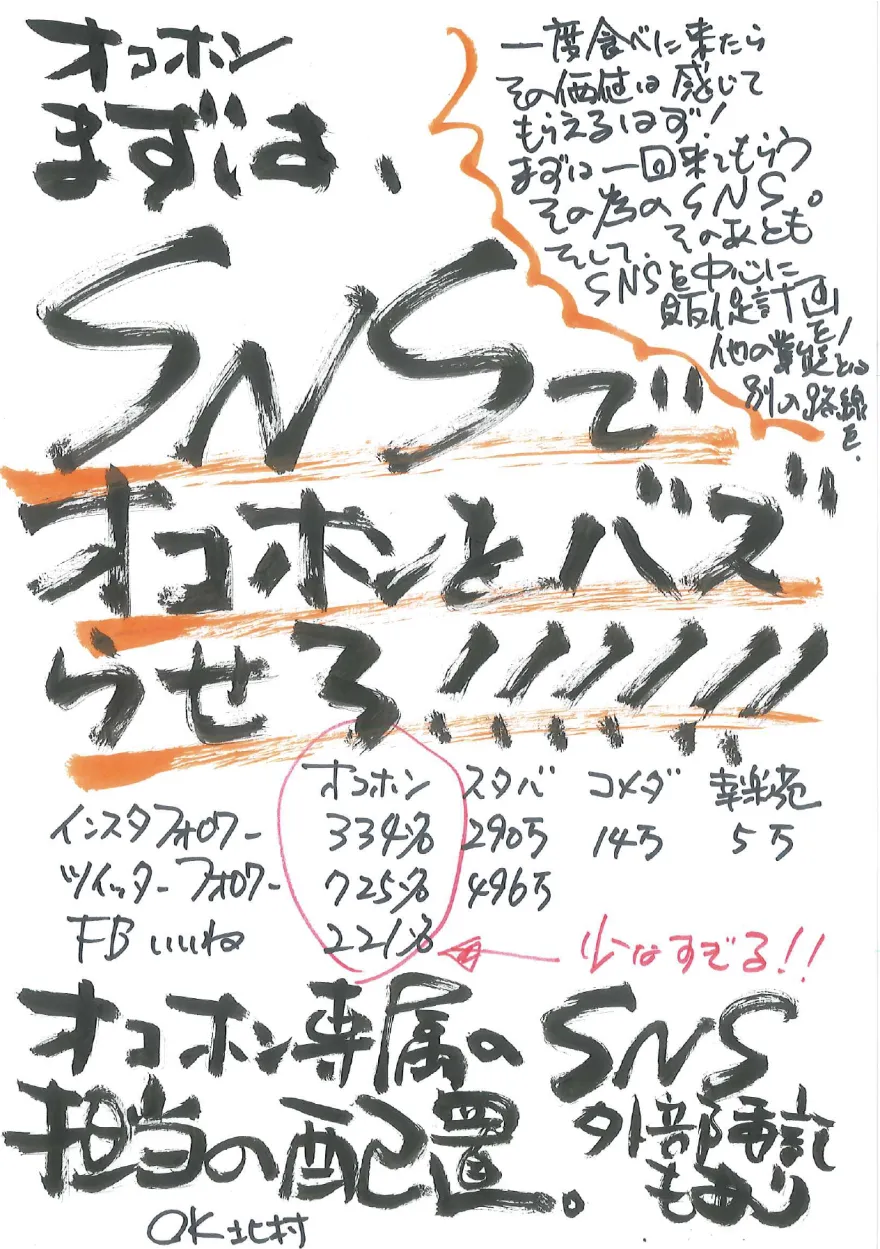 オコホン
まずは、
SNSで
オコホンとバズ
らせろ!!!!!!!
一度食べに来たら
その価値は感じて
もらえるはず!
まずは一回来てもらう
その為のSNS。
そして、そのあとも
SNSを中心に
販促計画を!
他の業態とは
別の路線を.
オコホン スタバ コメダ 幸楽苑
インスタフォロワー 334名 290万 14万 5万
ツイッターフォロワー 725名 496万
FBいいね 221名
少なすぎる!!
オコホン専属の
担当の配置。
SNS
外部委託
もあり
OK北村